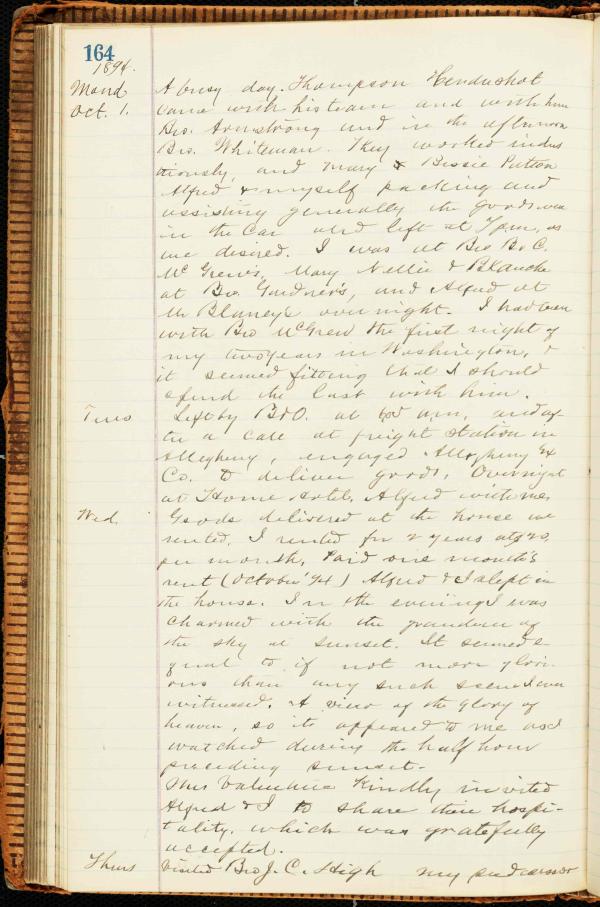 164
1894.
Mond A busy day. Thompson Hendershot
Oct. 1. came with his team and with him
Bro. Armstrong and in the afternoon
Bro. Whiteman. They worked indus
triously, and Mary & Bessie Patton
Alfred & myself packing and
assisting generally the goods were
in the car and left at 7 p.m. as
we desired. I was at Bro B. C.
McGrew's, Mary Nellie & Blanche
at Bro. Gardner's, and Alfred at
Mr Blaney's over night. I had been
with Bro McGrew the first night of
my two years in Washington, &
it seemed fitting that I should
spend the last with him.
Tues Left by B&O. at a.m. and af
ter a call at freight station in
Allegheny, engaged Allegheny Ex
Co. to deliver goods. Overnight
at Home Hotel, Alfred with me.
Wed. Goods delivered at the house we
rented. I rented for 2 years at
per month. Paid one month's
rent (October '94) Alfred & I slept in
the house. In the evening I was
charmed with the grandeur of
the sky at sunset. It seemed e-
qual to if not more glori-
ous than any such scene I ever
witnessed. A view of the glory of
heaven, so it appeared to me as I
watched during the half hour
preceding sunset.
Mrs Valentine kindly invited
Alfred & I to share their hospi-
tality, which was gratefully
accepted.
Thurs Visited Bro J. C. High my predecessor